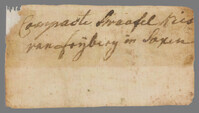 Compacte Draafel Kies
van Frÿberg in Saxen